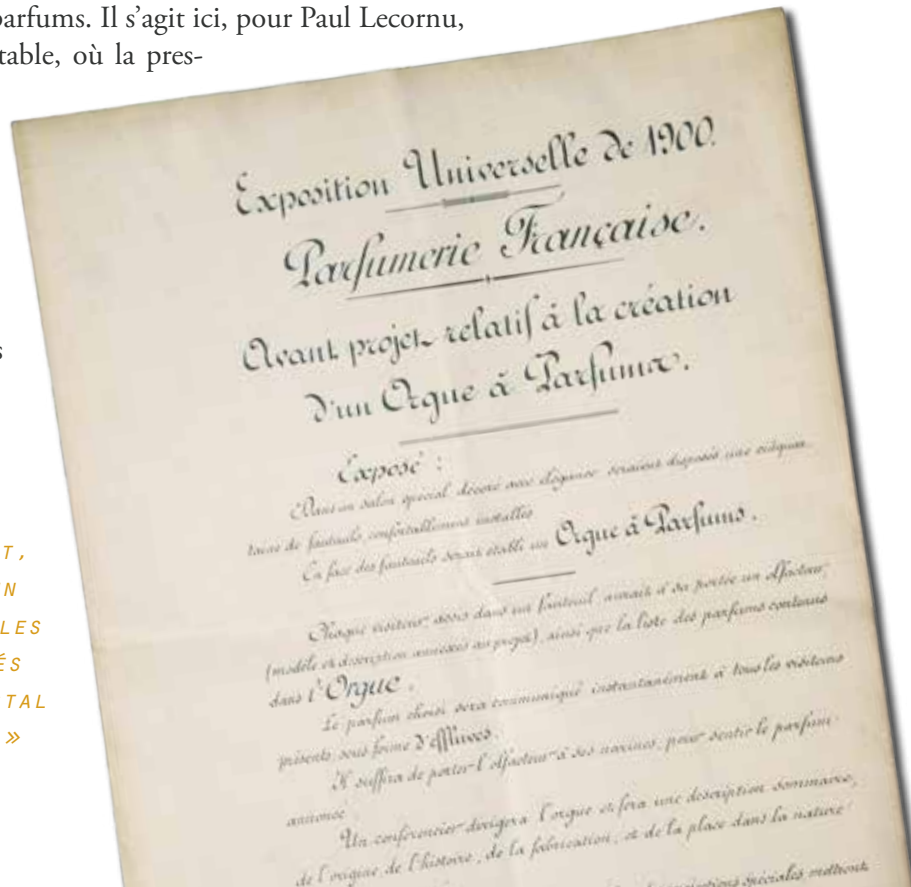 parfums. Il s’agit ici, pour Paul Lecornu,
table, où la pres-
s
T,
N
LES
ÉS
TAL
»
Exposition Universelle de 1900.
Parfumerie Française.
Avant projet relatif à la création
d'un Orgue à Parfums.
Exposé :
Dans un salon spécial décoré avec élégance seraient disposés une
taine de fauteuils confortablement installés
En face des fauteuils serait établi un Orgue à Parfums.
Chaque visiteur assis dans un fauteuil aurait à sa portée un olfacteur,
(modèle et description annexés au projet), ainsi que la liste des parfums contenus
dans l'Orgue.
Le parfum choisi sera communiqué instantanément à tous les visiteurs
présents, sous forme d'effluves.
Il suffira de porter l'olfacteur à ses narines, pour sentir le parfum
annoncé.
Un conférencier dirigera l'orgue et fera une description sommaire,
de l'origine, de l'histoire, de la fabrication, et de la place dans la nature
spéciales mettront